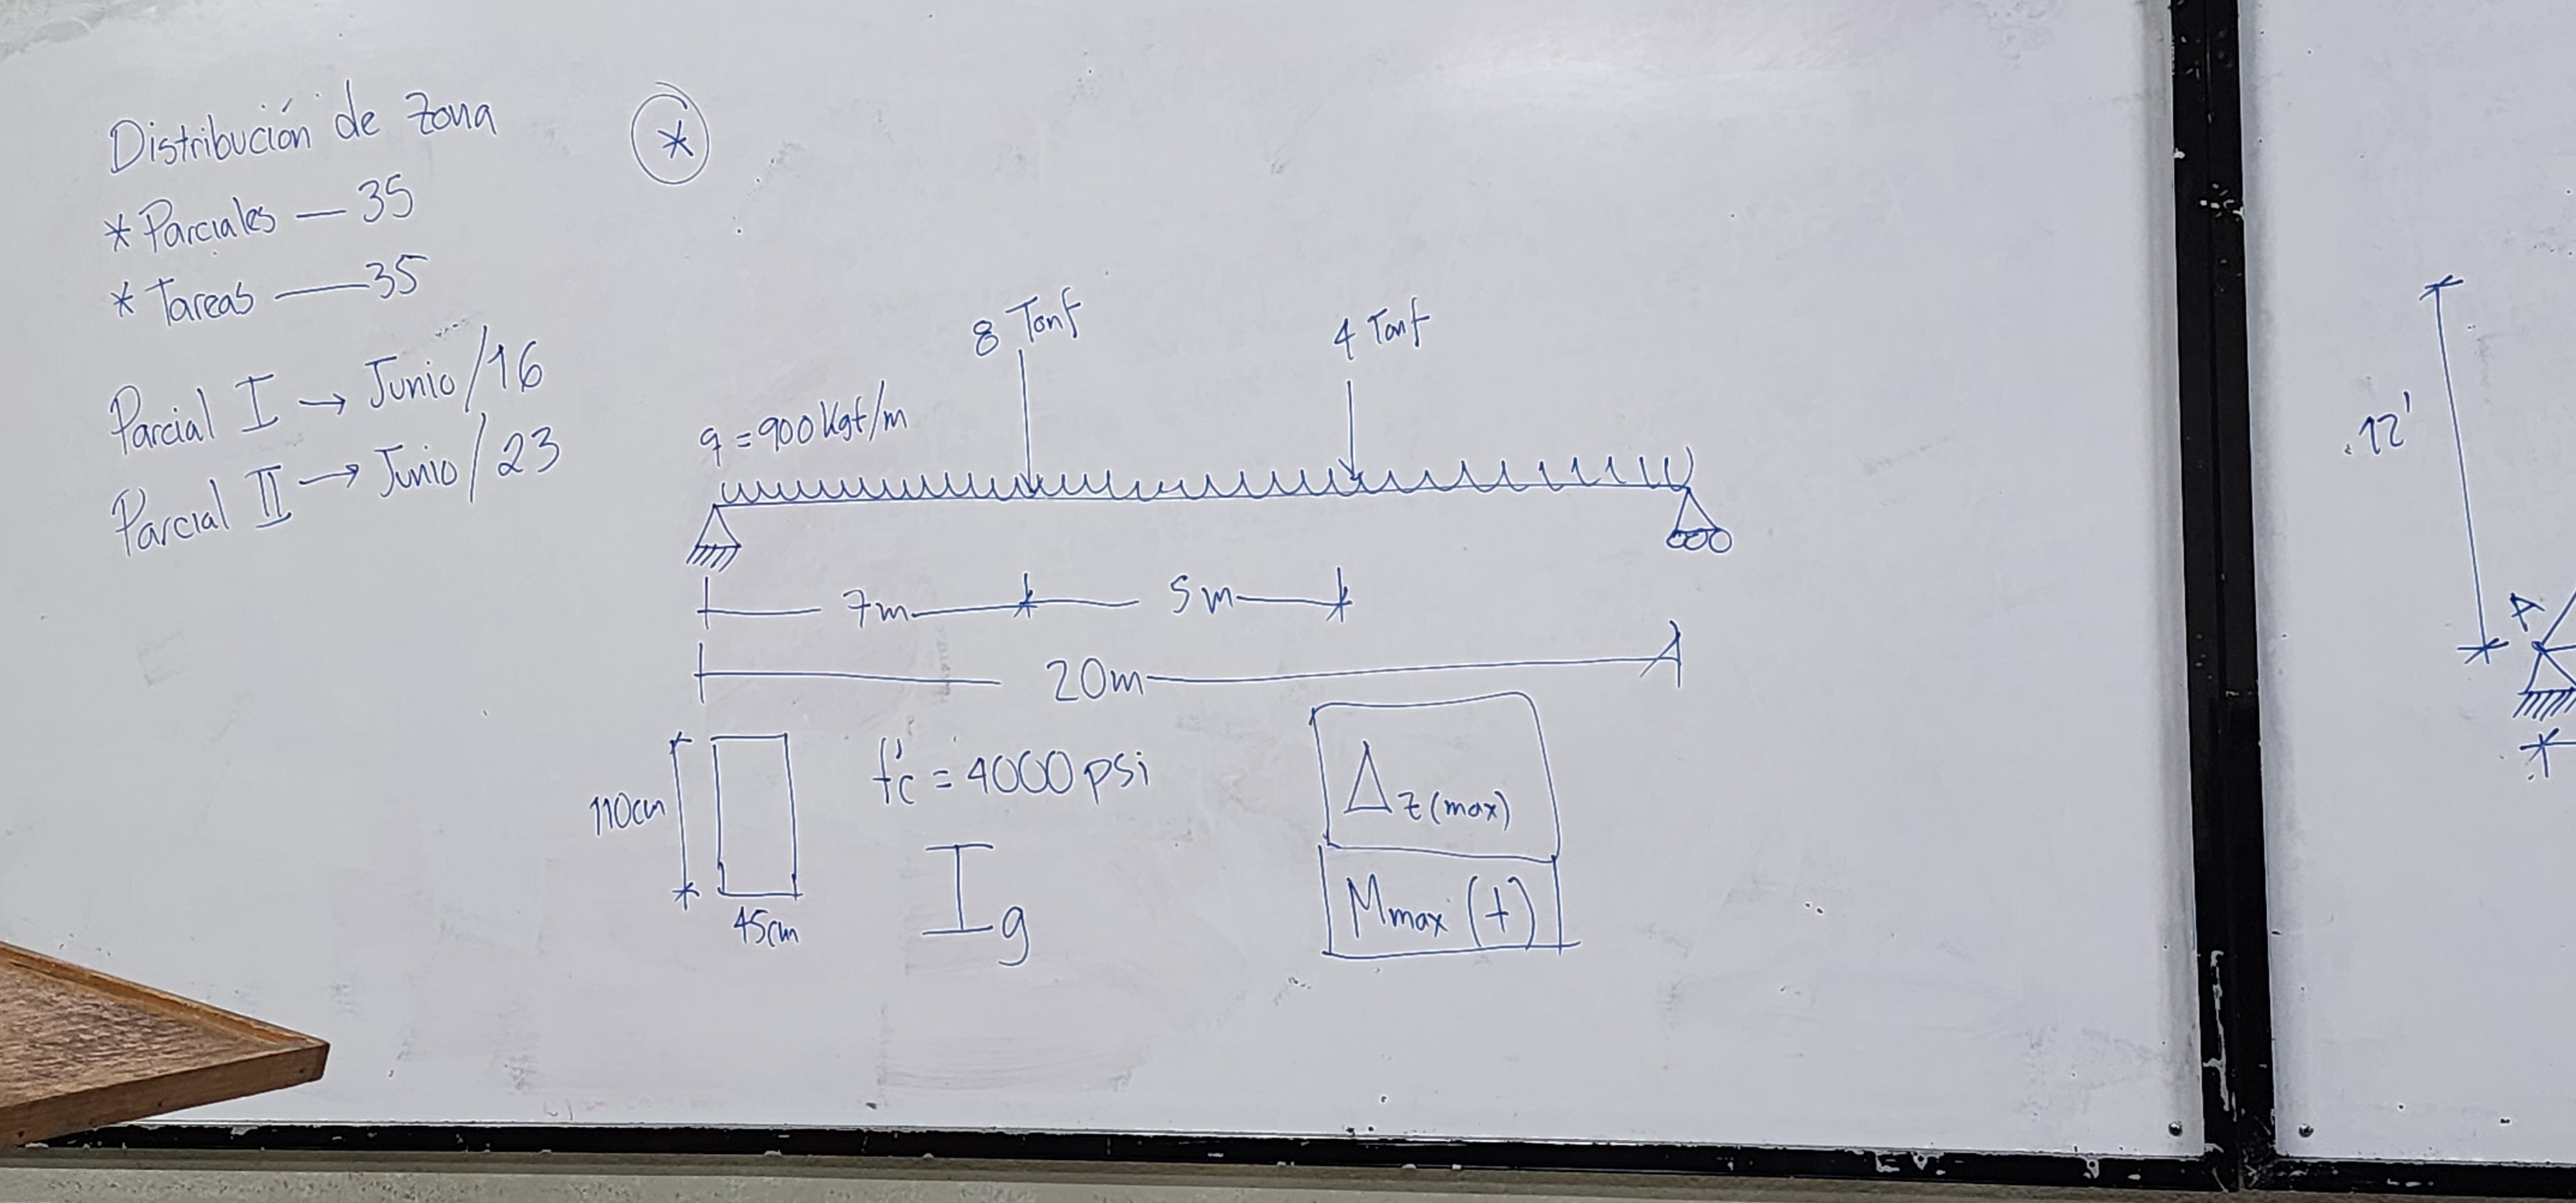 Distribución de zona
* Parciales — 35
* Tareas — 35
Parcial I → Junio/16
Parcial II → Junio/23
*
8 Tonf
4 Tonf
q = 900 Kgf/m
7m
5m
20m
110cm
45cm
f'c = 4000 psi
Ig
Δz(max)
Mmax (+)
12'
A